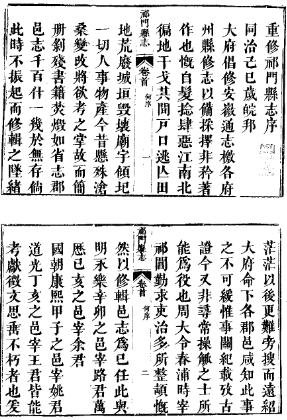 重修祁門縣志序
同治己巳歲皖邦
大府倡修安徽通志檄各府
州縣修志以備採擇非矜著
作也慨自髮捻肆惡江南北
徧地干戈其間戸口逃亾田
地荒廢城垣毀壞廟宇傾圮
一切人事物產今昔懸殊滄
桑變改將欲考之掌故而簡
册剝殘書籍英燬如省志郡
邑志千百什一幾於無存倘
此時不振起而修輯之墜緒
祁門縣志
卷首
何序
一
茫茫以後更難旁搜而遠紹
大府命下各郡邑咸知此事
之不可緩惟事關紀載攷古
證今又非尋常操觚之士所
能爲役也周大令春浦時宰
祁閶勤求吏治多所整頓慨
然以修輯邑志爲已任此與
明永樂辛卯之邑宰路君萬
歷己亥之邑宰余君
國朝康熙甲子之邑宰姚君
道光丁亥之邑宰王君皆能
考獻徵文思垂不朽者也爰
祁門縣志
卷首
何序
二